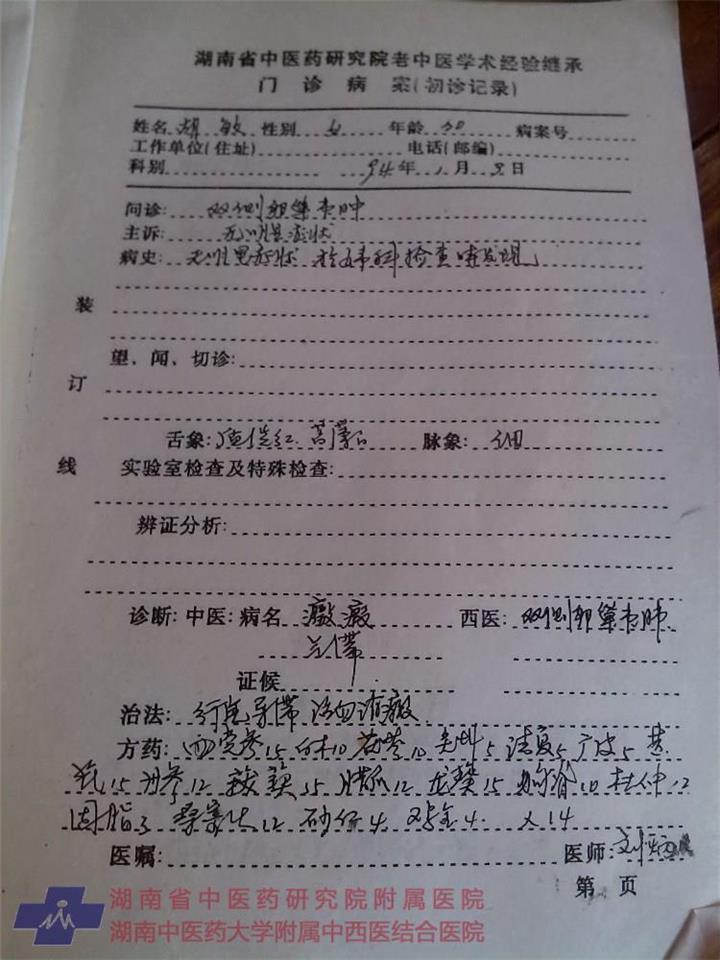 湖南省中医药研究院老中医学术经验继承
门 诊 病 案(初诊记录)
姓名 胡 敏 性别 女 年龄 病案号
工作单位(住址) 电话(邮编)
科别 94年 1月 8日
问诊: 双侧卵巢囊肿
主诉: 无明显症状
病史: 无明显症状 妇科检查时发现
装
望、闻、切诊:
订
舌象: 淡红 苔薄白 脉象: 细
线 实验室检查及特殊检查:
辨证分析:
诊断: 中医: 病名 癥瘕 西医: 双侧卵巢囊肿
带
证候
治法: 行气 带 消癥
方药: 西党参15 白术10 茯苓10 5 法夏5 广皮5 黄
芪15 丹参12 15 12 龙葵15 10 杜仲12
固脂3 桑寄生12 砂仁4 4 ×14
医嘱: 医师: 刘
第 页
湖南省中医药研究院附属医院
湖南中医药大学附属中西医结合医院